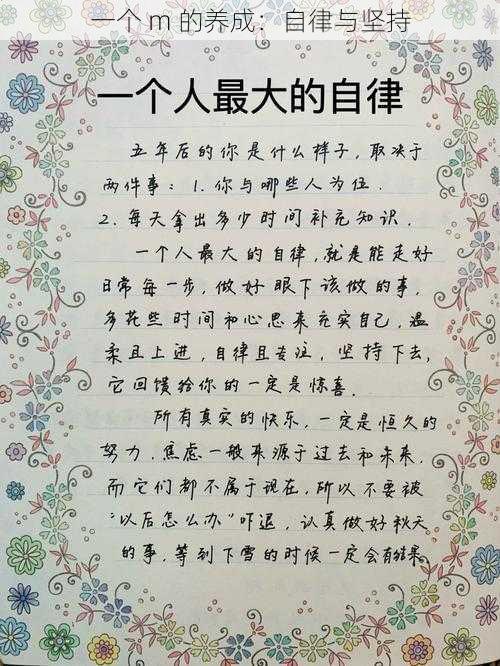 一个 m 的养成：自律与坚持
一个人最大的自律
五年后的你是什么样子，取决于
两件事：1. 你与哪些人为伍．
2. 每天拿出多少时间补充知识．
一个人最大的自律，就是能走好
日常每一步，做好眼下该做的事，
多花些时间和心思来充实自己，温
柔且上进，自律且专注，坚持下去，
它回馈给你的一定是惊喜．
所有真实的快乐，一定是恒久的
努力．焦虑一般来源于过去和未来，
而它们都不属于现在，所以不要被
“以后怎么办”吓退，认真做好秋天
的事，等到下雪的时候一定会有结果．